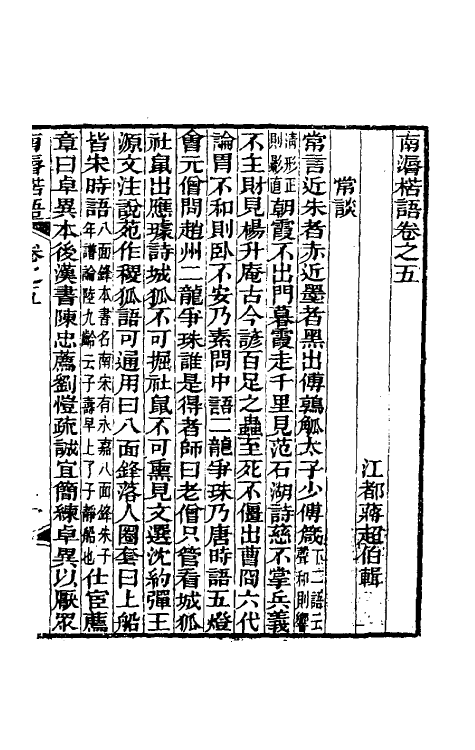 南漘楛語卷之五
江都蔣超伯輯
常談
常言近朱者赤近墨者黑出傅鶉觚太子少傅箴下二語云聲和則響
清形正則影直朝霞不出門暮霞走千里見范石湖詩慈不掌兵義
不主財見楊升庵古今諺百足之蟲至死不僵出曹冏六代
論胃不和則臥不安乃素問中語二龍爭珠乃唐時語五燈
會元僧問趙州二龍爭珠誰是得者師曰老僧只管看城狐
社鼠出應璩詩城狐不可掘社鼠不可熏見文選沈約彈王
源文注說苑作稷狐語可通用曰八面鋒落人圈套曰上船
皆宋時語八面鋒本書名南宋有永嘉八面鋒朱子年譜論陸九齡云子壽早上了子靜船也仕宦薦
章曰卓異本後漢書陳忠薦劉愷疏誠宜簡練卓異以厭眾
南漘楛語 卷之五 一